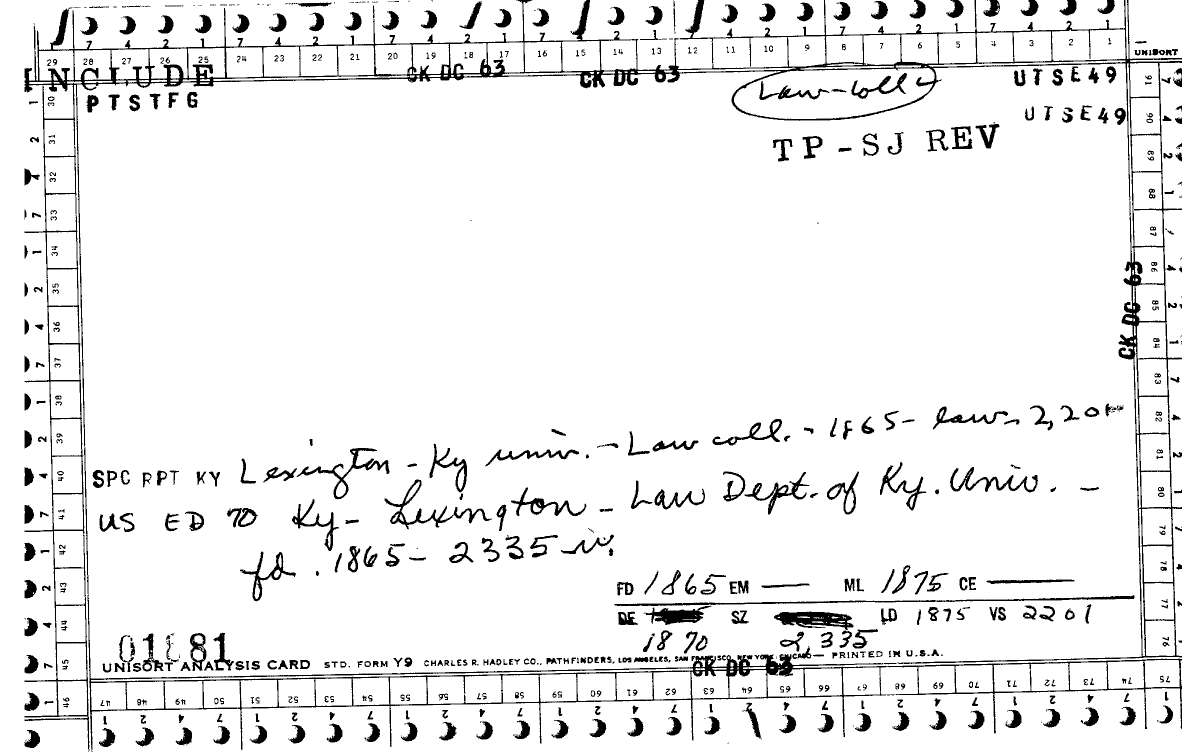 7 4 2 1 7 4 2 1 7 4 2 1 7 4 2 1 7 4 2 1 7 4 2 1 7 4 2 1
29 28 27 26 25 24 23 22 21 20 19 18 17 16 15 14 13 12 11 10 9 8 7 6 5 4 3 2 1 UNISORT
INCLUDE CK DC 63 CK DC 63 Law-coll UTSE49
PTSTFG UTSE49
TP-SJ REV
CK DC 63
SPC RPT KY Lexington - Ky univ. - Law coll. - 1865 - law - 2,201
US ED 70 Ky - Lexington - Law Dept. of Ky. Univ. -
fd. 1865 - 2335 v.
FD 1865 EM — ML 1875 CE —
DE SZ LD 1875 VS 2201
1870 2,335
01881
UNISORT ANALYSIS CARD STD. FORM Y9 CHARLES R. HADLEY CO., PATHFINDERS, LOS ANGELES, SAN FRANCISCO, NEW YORK, CHICAGO — PRINTED IN U.S.A.
CK DC 63
47 48 49 50 51 52 53 54 55 56 57 58 59 60 61 62 63 64 65 66 67 68 69 70 71 72 73 74 75
1 2 4 7 1 2 4 7 1 2 4 7 1 2 4 7 1 2 4 7 1 2 4 7 1 2 4 7